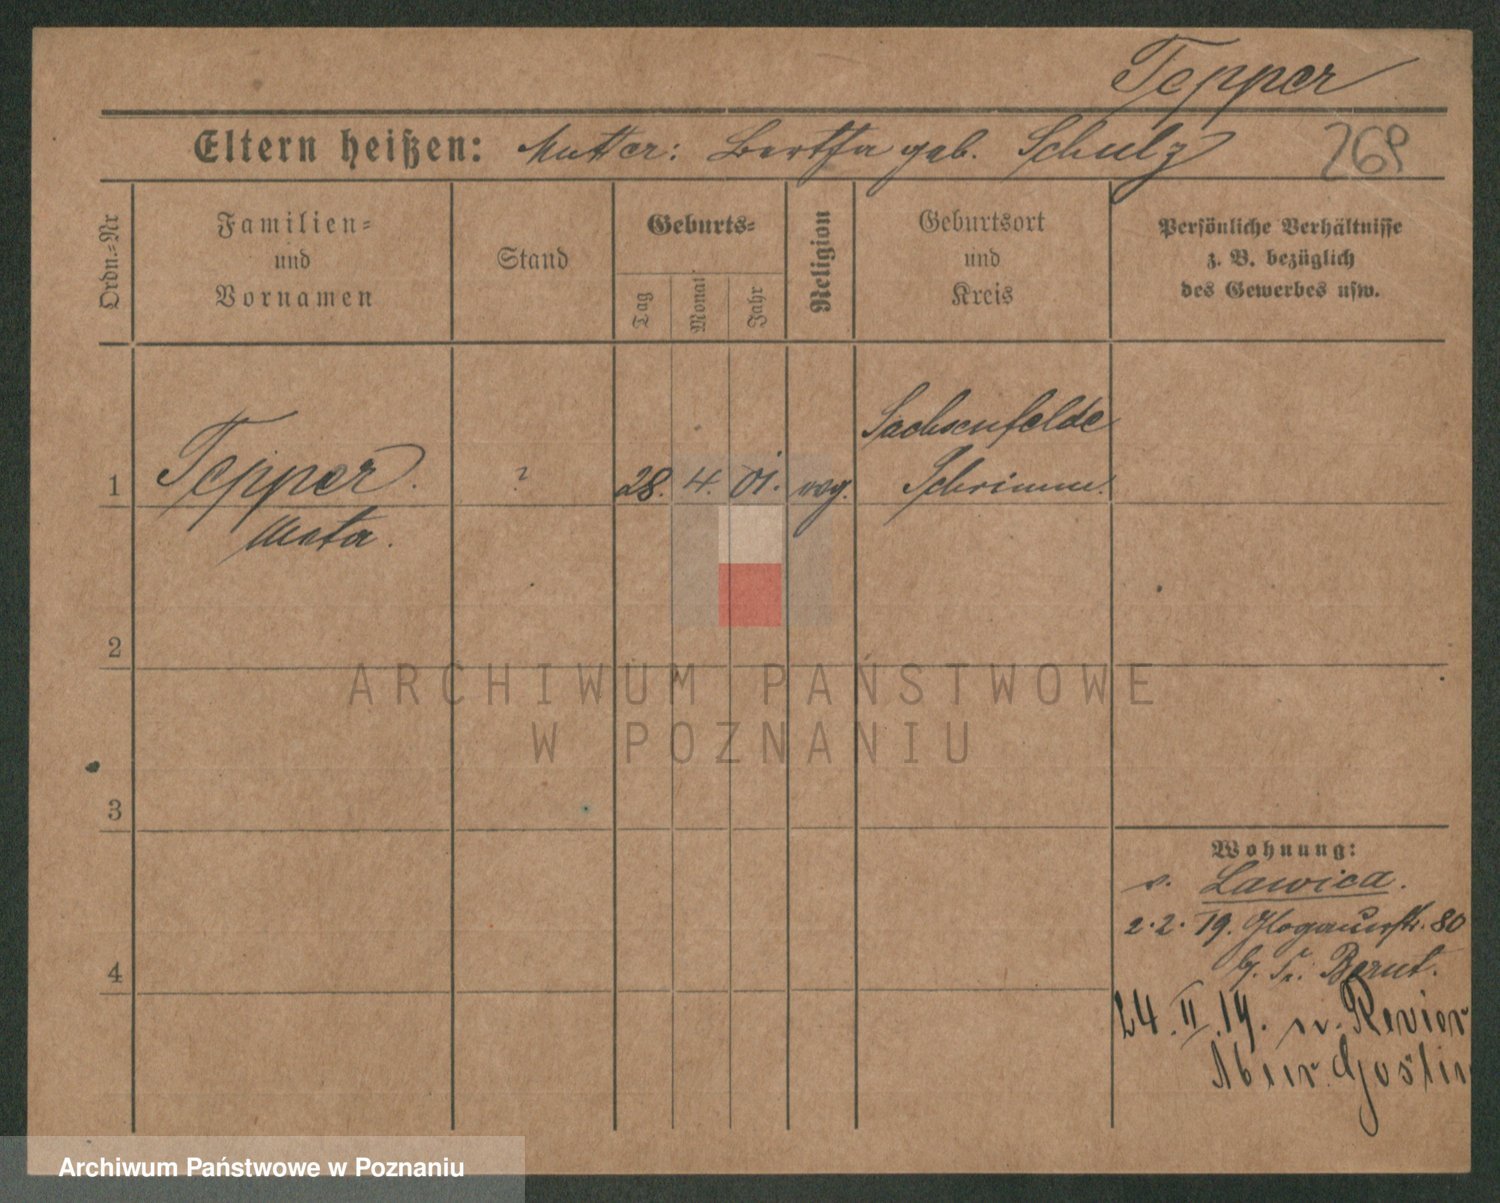 Tepper
Eltern heißen: Mutter: Bertha geb. Schulz
269
Ordn.-Nr
Familien-
und
Vornamen
Stand
Geburts-
Tag
Monat
Jahr
Religion
Geburtsort
und
Kreis
Persönliche Verhältnisse
z. B. bezüglich
des Gewerbes usw.
1
Tepper.
Meta.
?
28. 4. 01.
evg.
Sachsenfelde
Schrimm.
2
3
4
Wohnung:
v. Lawica.
2. 2. 19. Glogauerstr. 80
b. Fr. Bernt.
24. II. 19. n. Revier
Gostin
ARCHIWUM PAŃSTWOWE
W POZNANIU
Archiwum Państwowe w Poznaniu